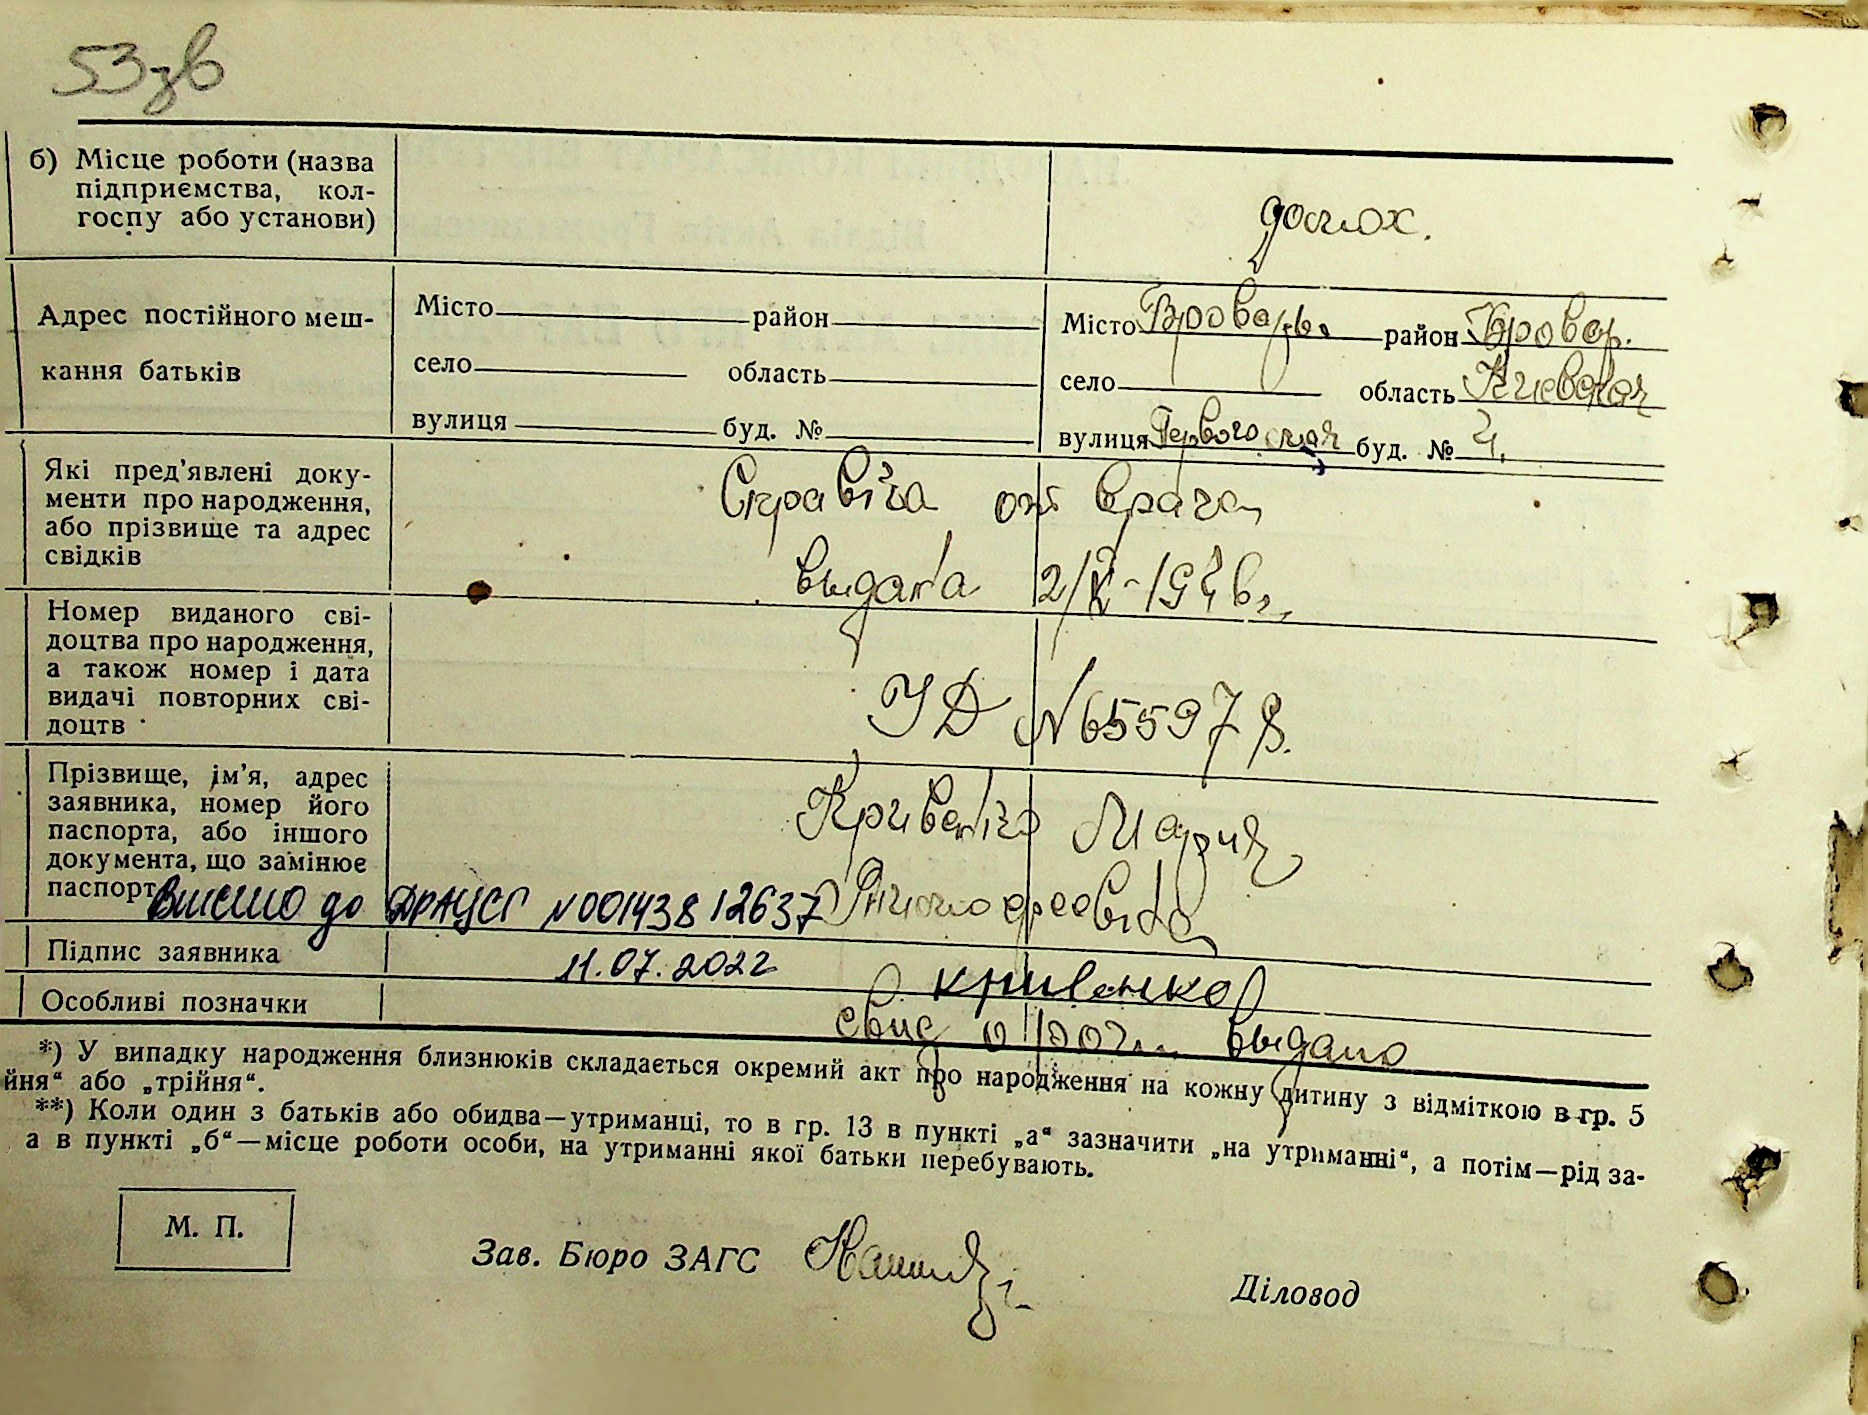 53зв
б) Місце роботи (назва
підприємства, кол-
госпу або установи)
домох.
Адрес постійного меш-
кання батьків
Місто район
село область
вулиця буд. №
Місто Бровары район Бровар.
село область Киевская
вулиця Первого мая буд. №
Які пред'явлені доку-
менти про народження,
або прізвище та адрес
свідків
Справка от врача
выдана
Номер виданого сві-
доцтва про народження,
а також номер і дата
видачі повторних сві-
доцтв
УД N 655978.
Прізвище, ім'я, адрес
заявника, номер його
паспорта, або іншого
документа, що замінює
паспорт
Кривенко Мария
Внесено до ДРАЦСГ N00143812637
Підпис заявника
11.07.2022
Кривенко
Особливі позначки
выдано
*) У випадку народження близнюків складається окремий акт про народження на кожну дитину з відміткою в гр. 5
йня“ або „трійня“.
**) Коли один з батьків або обидва—утриманці, то в гр. 13 в пункті „а“ зазначити „на утриманні“, а потім—рід за-
а в пункті „б“—місце роботи особи, на утриманні якої батьки перебувають.
М. П.
Зав. Бюро ЗАГС
Діловод